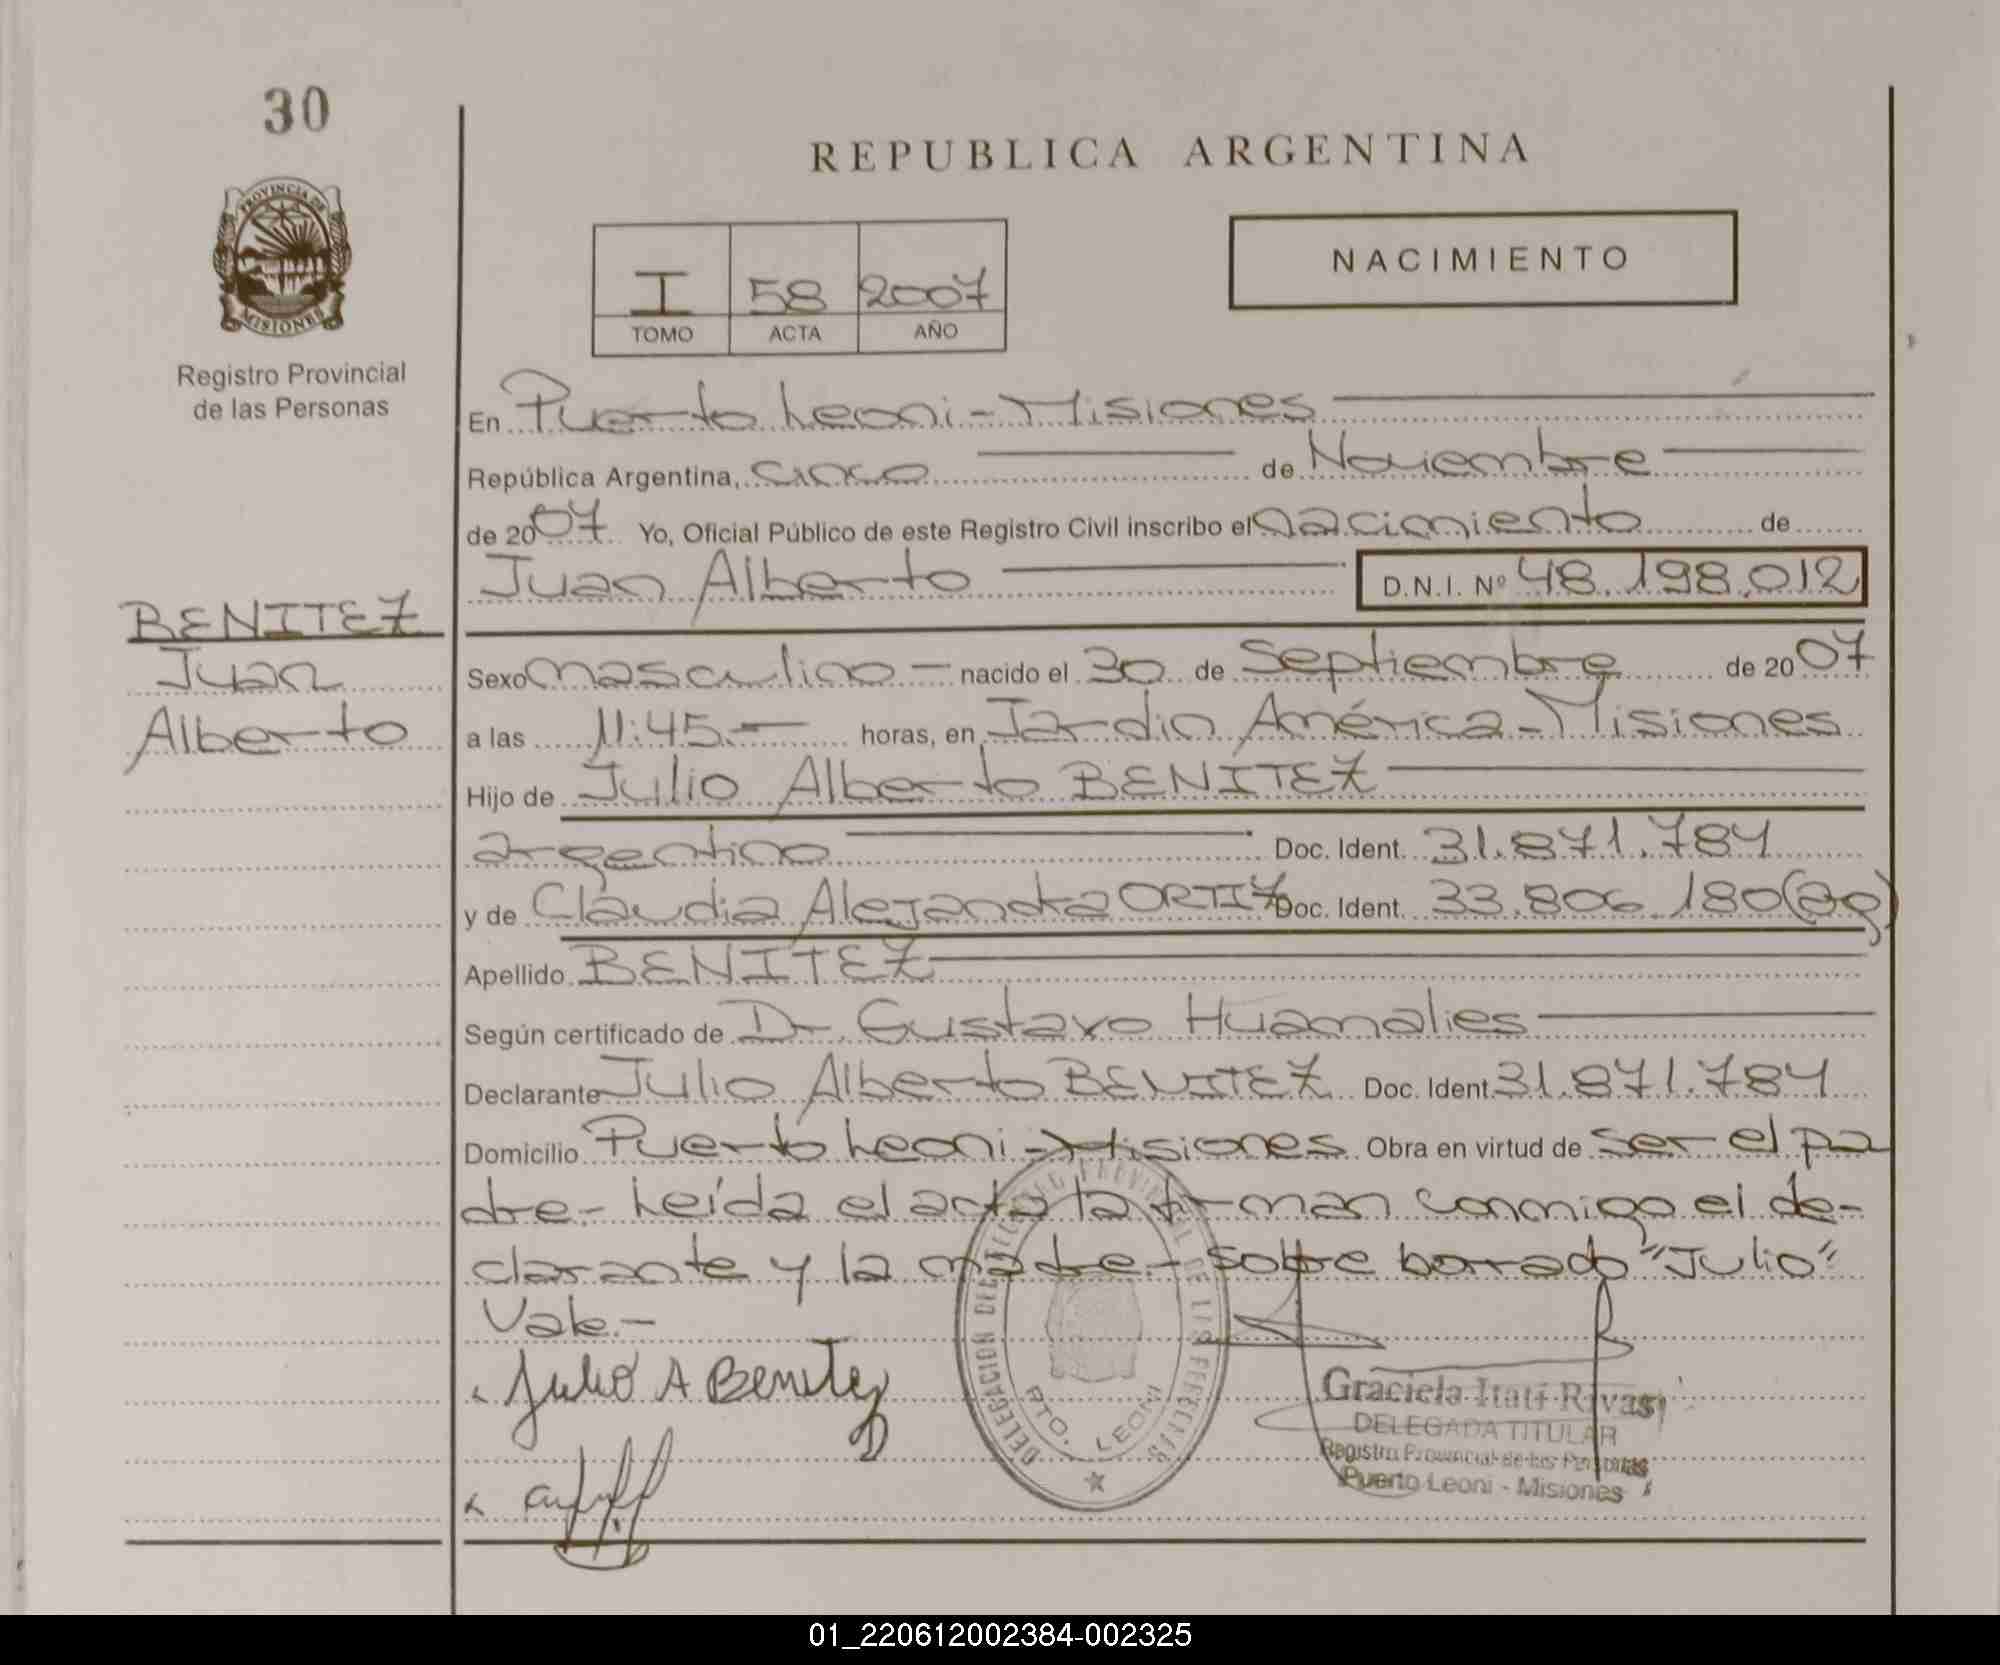 30
PROVINCIA DE
MISIONES
Registro Provincial
de las Personas
REPUBLICA ARGENTINA
I 58 2007
TOMO ACTA AÑO
NACIMIENTO
En Puerto Leoni - Misiones
República Argentina, cinco de Noviembre
de 2007 Yo, Oficial Público de este Registro Civil inscribo el nacimiento de
Juan Alberto D.N.I. Nº 48.198.012
BENITEZ
Juan
Alberto
Sexo masculino - nacido el 30 de Septiembre de 2007
a las 11:45.- horas, en Jardin América - Misiones
Hijo de Julio Alberto BENITEZ
argentino Doc. Ident. 31.871.784
y de Claudia Alejandra ORTIZ Doc. Ident. 33.806.180 (ag)
Apellido BENITEZ
Según certificado de Dr. Gustavo Huamalies
Declarante Julio Alberto BENITEZ Doc. Ident. 31.871.784
Domicilio Puerto Leoni - Misiones Obra en virtud de ser el pa
dre - Leída el acta la firman conmigo el de-
clarante y la madre - sobre borrado "Julio"
Vale.-
Julio A Benitez
PTO. LEONI
Graciela Itatí Rivas
DELEGADA TITULAR
Registro Provincial de las Personas
Puerto Leoni - Misiones
01_220612002384-002325